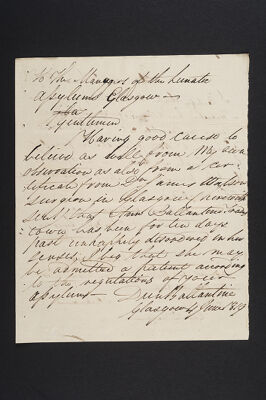 To The Managers of the Lunatic
Asylums Glasgow
Gentlemen
Having good cause to
believe as well from my own
observation as also from a cer-
tificate from Dr James Watson
surgeon in Glasgow (herewith
sent) that Ballantine
has been for ten days
past unhappily disordered in her
senses, I beg that she may
be admitted a patient according
to the regulations of your
asylum Ballantine
Glasgow 4 June